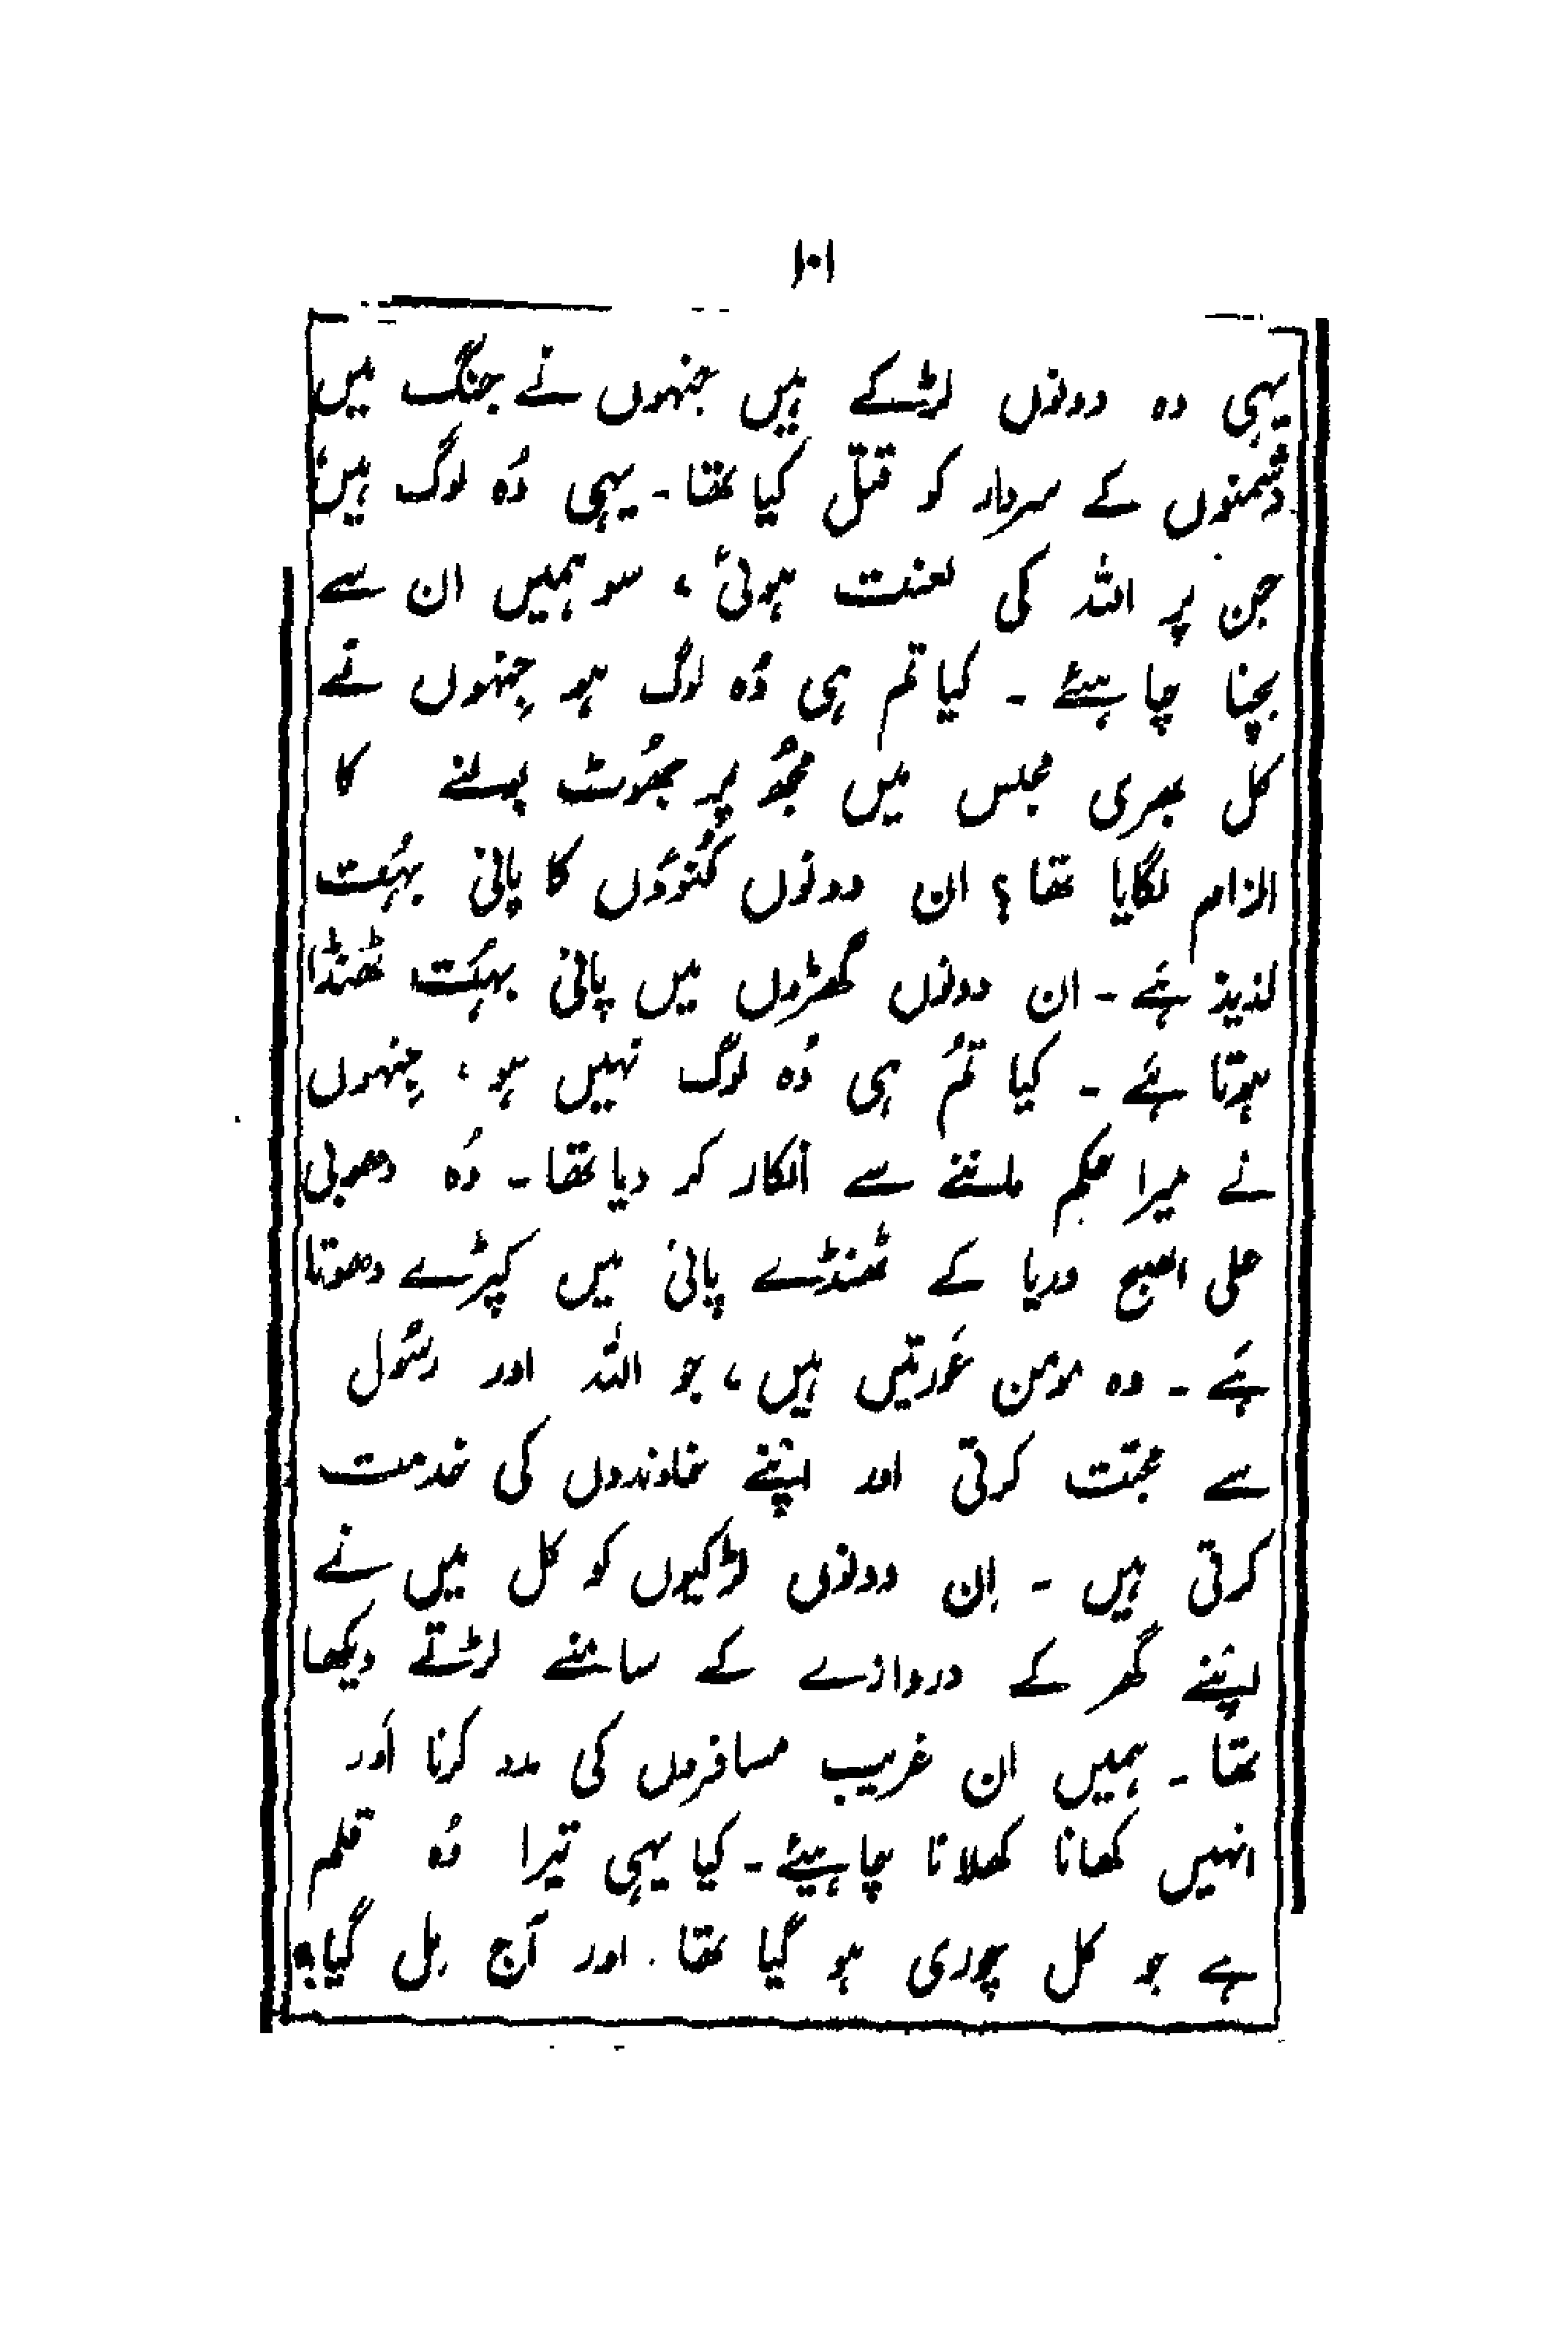 ۱۰۱
یہی وہ دونوں لڑکے ہیں جنہوں نے جنگ میں
دشمنوں کے سردار کو قتل کیا تھا۔ یہی وُہ لوگ ہیں
جن پر اللہ کی لعنت ہوئی، سو ہمیں ان سے
بچنا چاہئے ۔ کیا تم ہی وُہ لوگ ہو جِنہوں نے
کل بھری مجلس میں مجھُ پر جھُوٹ بولنے کا
الزام لگایا تھا؟ ان دونوں کُنوؤں کا پانی بہُت
لذیذ ہَے ۔ ان دونوں گھڑوں میں پانی بہُت ٹھنڈا
ہوتا ہَے ۔ کیا تُم ہی وُہ لوگ نہیں ہو، جِنہوں
نے میرا حکم ماننے سے انکار کر دیا تھا۔ وُہ دھوبی
علی الصبح دریا کے ٹھنڈے پانی میں کپڑے دھوتا
ہَے ۔ وہ مومن عَورتیں ہیں، جو اللہ اور رسُول
سے محبّت کرتی اور اپنے خاوندوں کی خدمت
کرتی ہیں ۔ اِن دونوں لڑکیوں کو کل میں نے
اپنے گھر کے دروازے کے سامنے لڑتے دیکھا
تھا ۔ ہمیں ان غریب مسافروں کی مدد کرنا اَور
انہیں کھانا کھلانا چاہیئے ۔ کیا یہی تیرا وُہ قلم
ہے جو کل چوری ہو گیا تھا۔ اور آج مِل گیا؟